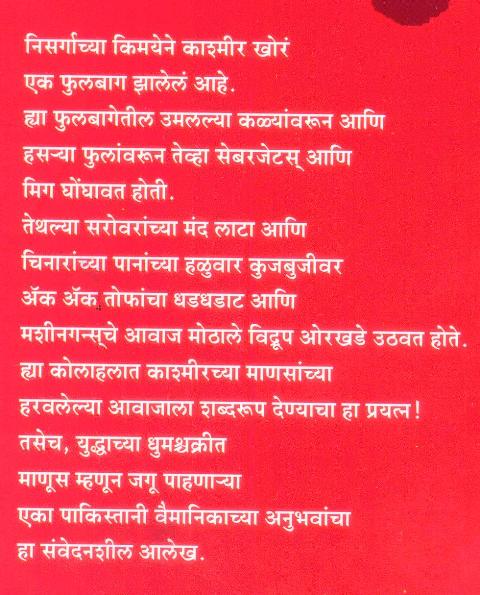 निसर्गाच्या किमयेने काश्मीर खोरं
एक फुलबाग झालेलं आहे.
ह्या फुलबागेतील उमलल्या कळ्यांवरून आणि
हसऱ्या फुलांवरून तेव्हा सेबरजेटस् आणि
मिग घोंघावत होती.
तेथल्या सरोवरांच्या मंद लाटा आणि
चिनारांच्या पानांच्या हळुवार कुजबुजीवर
ॲक ॲक तोफांचा धडधडाट आणि
मशीनगन्स्‌चे आवाज मोठाले विद्रूप ओरखडे उठवत होते.
ह्या कोलाहलात काश्मीरच्या माणसांच्या
हरवलेल्या आवाजाला शब्दरूप देण्याचा हा प्रयत्न!
तसेच, युद्धाच्या धुमश्चक्रीत
माणूस म्हणून जगू पाहणाऱ्या
एका पाकिस्तानी वैमानिकाच्या अनुभवांचा
हा संवेदनशील आलेख.